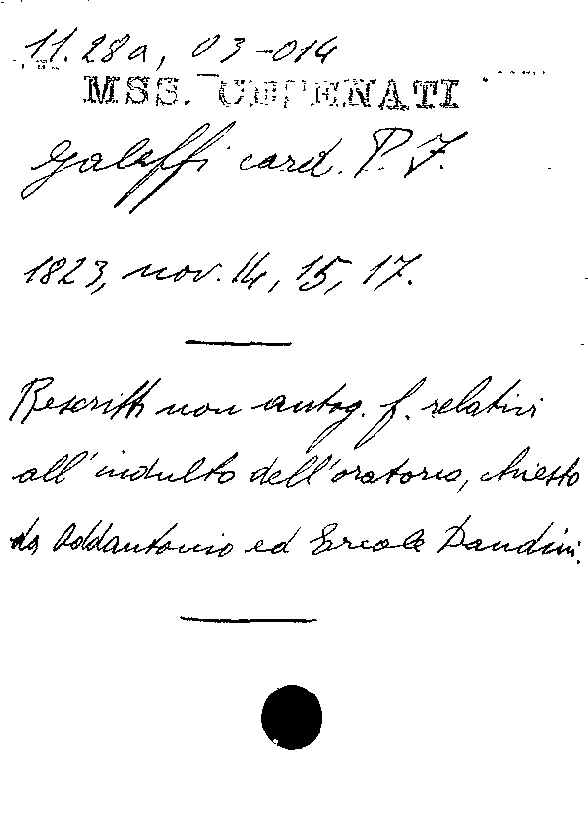 11.28a, 03-014
MSS. CESENATI
Galeffi card. P. F.
1823, nov. 14, 15, 17.
Rescritti non autog. f. relativi
all'indulto dell'oratorio, chiesto
da Oddantonio ed Ercole Dandini.